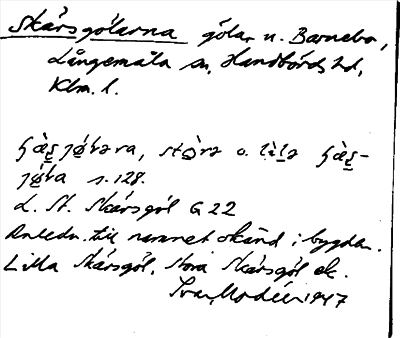 Skårsgölarna gölar n. Barnebo,
Långemåla sn, Handbörds hd,
Klm. l.
stò̩rə o. lìlə
s. 128.
L. St. Skårsgöl G 22
Anledn. till namnet okänd i bygden.
Lilla Skårsgöl, Stora Skårsgöl ek.
Ivar Modéer 1947